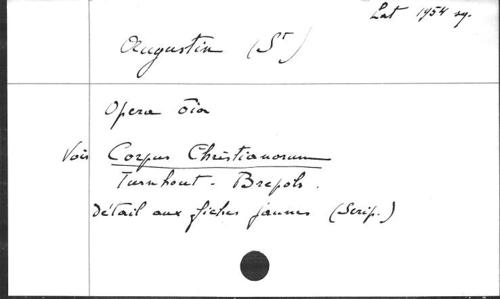 Lat 1954 sq.
Augustin (St)
Opera oia
Voir Corpus Christianorum
Turnhout - Brepols.
Détail aux fiches jaunes (Scrip.)